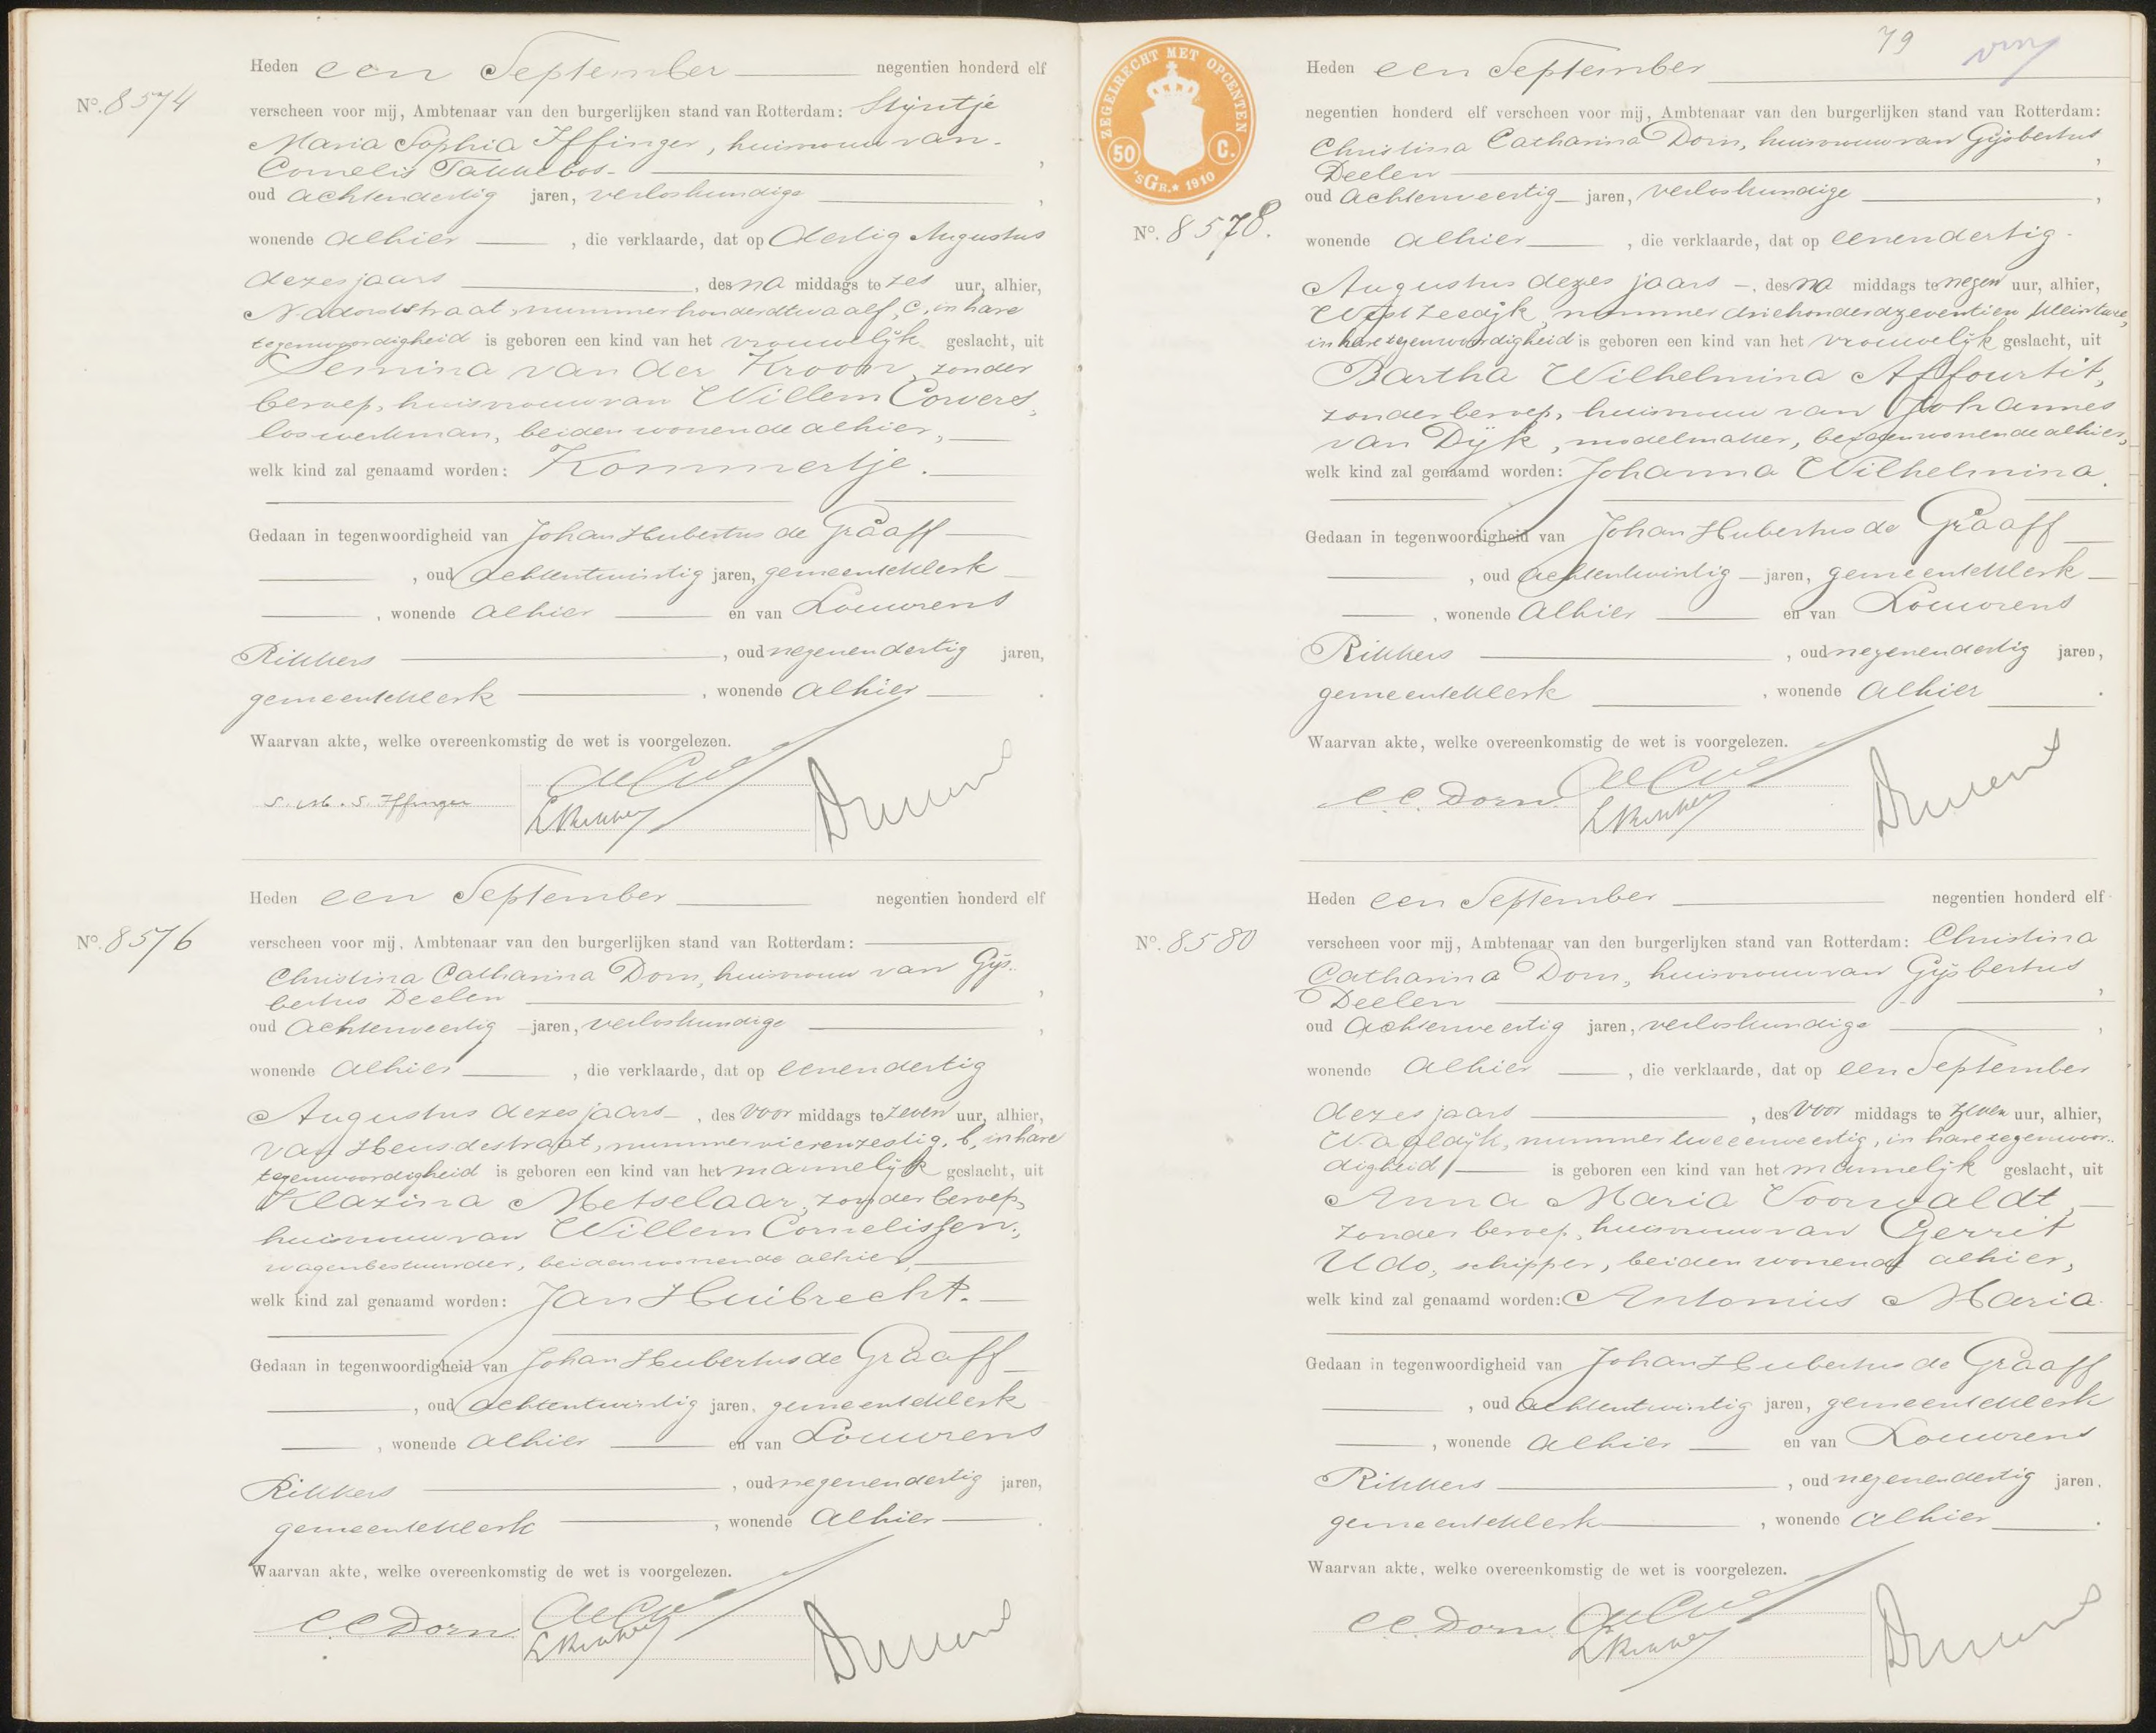 Heden een September negentien honderd elf
No. 8574
verscheen voor mij, Ambtenaar van den burgerlijken stand van Rotterdam: Stijntje
Maria Sophia Iffinger, huisvrouw van
Cornelis Takkebos
oud achtendertig jaren, verloskundige,
wonende alhier, die verklaarde, dat op dertig Augustus
dezes jaars, des na middags te zes uur, alhier,
nummer honderdtwaalf, C, in hare
tegenwoordigheid is geboren een kind van het vrouwelijk geslacht, uit
Semina van der Kroon, zonder
beroep, huisvrouw van Willem Corvers,
loswerkman, beiden wonende alhier,
welk kind zal genaamd worden: Kommertje.
Gedaan in tegenwoordigheid van Johan Hubertus de Graaff
, oud achtentwintig jaren, gemeenteklerk
, wonende alhier en van Louwrens
Rikkers, oud negenendertig jaren,
gemeenteklerk, wonende alhier.
Waarvan akte, welke overeenkomstig de wet is voorgelezen.
S. M. S. Iffinger
L Rikkers
Heden een September negentien honderd elf
No. 8576
verscheen voor mij, Ambtenaar van den burgerlijken stand van Rotterdam:
Christina Catharina Dorn, huisvrouw van Gijs-
bertus Deelen,
oud achtenveertig jaren, verloskundige,
wonende alhier, die verklaarde, dat op eenendertig
Augustus dezes jaars, des voor middags te zeven uur, alhier,
van Heusdestraat, nummer vierenzestig, b, in hare
tegenwoordigheid is geboren een kind van het mannelijk geslacht, uit
Klazina Metselaar, zonder beroep,
huisvrouw van Willem Cornelissen,
wagenbestuurder, beiden wonende alhier,
welk kind zal genaamd worden: Jan Huibrecht.
Gedaan in tegenwoordigheid van Johan Hubertus de Graaff
, oud achtentwintig jaren, gemeenteklerk
, wonende alhier en van Louwrens
Rikkers, oud negenendertig jaren,
gemeenteklerk, wonende alhier.
Waarvan akte, welke overeenkomstig de wet is voorgelezen.
C C Dorn
L Rikkers
79
ZEGELRECHT MET OPCENTEN
50 C.
'sGR. 1910
Heden een September
negentien honderd elf verscheen voor mij, Ambtenaar van den burgerlijken stand van Rotterdam:
Christina Catharina Dorn, huisvrouw van Gijsbertus
Deelen,
oud achtenveertig jaren, verloskundige,
No. 8578.
wonende alhier, die verklaarde, dat op eenendertig
Augustus dezes jaars, des na middags te negen uur, alhier,
West Zeedijk, nummer driehonderdzeventien
in hare tegenwoordigheid is geboren een kind van het vrouwelijk geslacht, uit
Bartha Wilhelmina Affourtit,
zonder beroep, huisvrouw van Johannes
van Dijk, modelmaker, beiden wonende alhier,
welk kind zal genaamd worden: Johanna Wilhelmina.
Gedaan in tegenwoordigheid van Johan Hubertus de Graaff
, oud achtentwintig jaren, gemeenteklerk
, wonende alhier en van Louwrens
Rikkers, oud negenendertig jaren,
gemeenteklerk, wonende alhier.
Waarvan akte, welke overeenkomstig de wet is voorgelezen.
C.C. Dorn.
L Rikkers
Heden een September negentien honderd elf
No. 8580
verscheen voor mij, Ambtenaar van den burgerlijken stand van Rotterdam: Christina
Catharina Dorn, huisvrouw van Gijsbertus
Deelen,
oud achtenveertig jaren, verloskundige,
wonende alhier, die verklaarde, dat op een September
dezes jaars, des voor middags te zeven uur, alhier,
nummer tweeenveertig, in hare tegenwoor-
digheid is geboren een kind van het mannelijk geslacht, uit
Anna Maria Voorwaldt,
zonder beroep, huisvrouw van Gerrit
Udo, schipper, beiden wonende alhier,
welk kind zal genaamd worden: Antonius Maria.
Gedaan in tegenwoordigheid van Johan Hubertus de Graaff
, oud achtentwintig jaren, gemeenteklerk
, wonende alhier en van Louwrens
Rikkers, oud negenendertig jaren,
gemeenteklerk, wonende alhier.
Waarvan akte, welke overeenkomstig de wet is voorgelezen.
C.C. Dorn.
L Rikkers